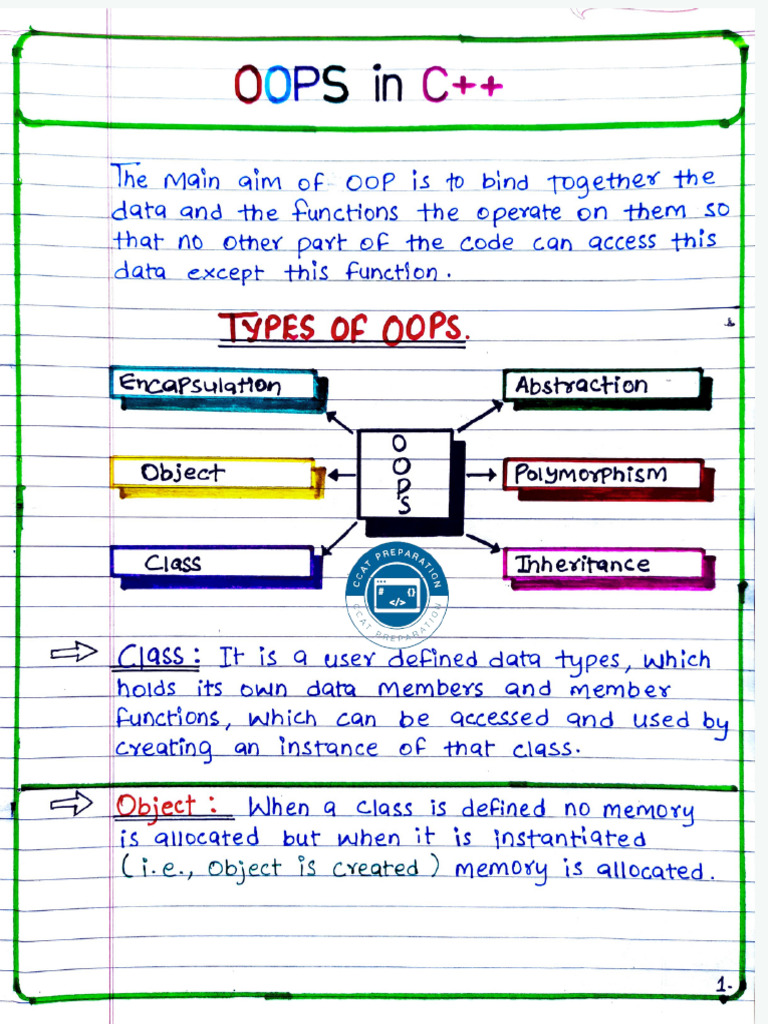 OOPS in C++
The main aim of OOP is to bind together the
data and the functions the operate on them so
that no other part of the code can access this
data except this function.
TYPES OF OOPS.
Encapsulation
Abstraction
OOPS
Object
Polymorphism
Class
Inheritance
CCAT PREPARATION
# {}
</>
CCAT PREPARATION
Class: It is a user defined data types, which
holds its own data members and member
functions, which can be accessed and used by
creating an instance of that class.
Object: When a class is defined no memory
is allocated but when it is instantiated
(i.e., object is created) memory is allocated.
1.